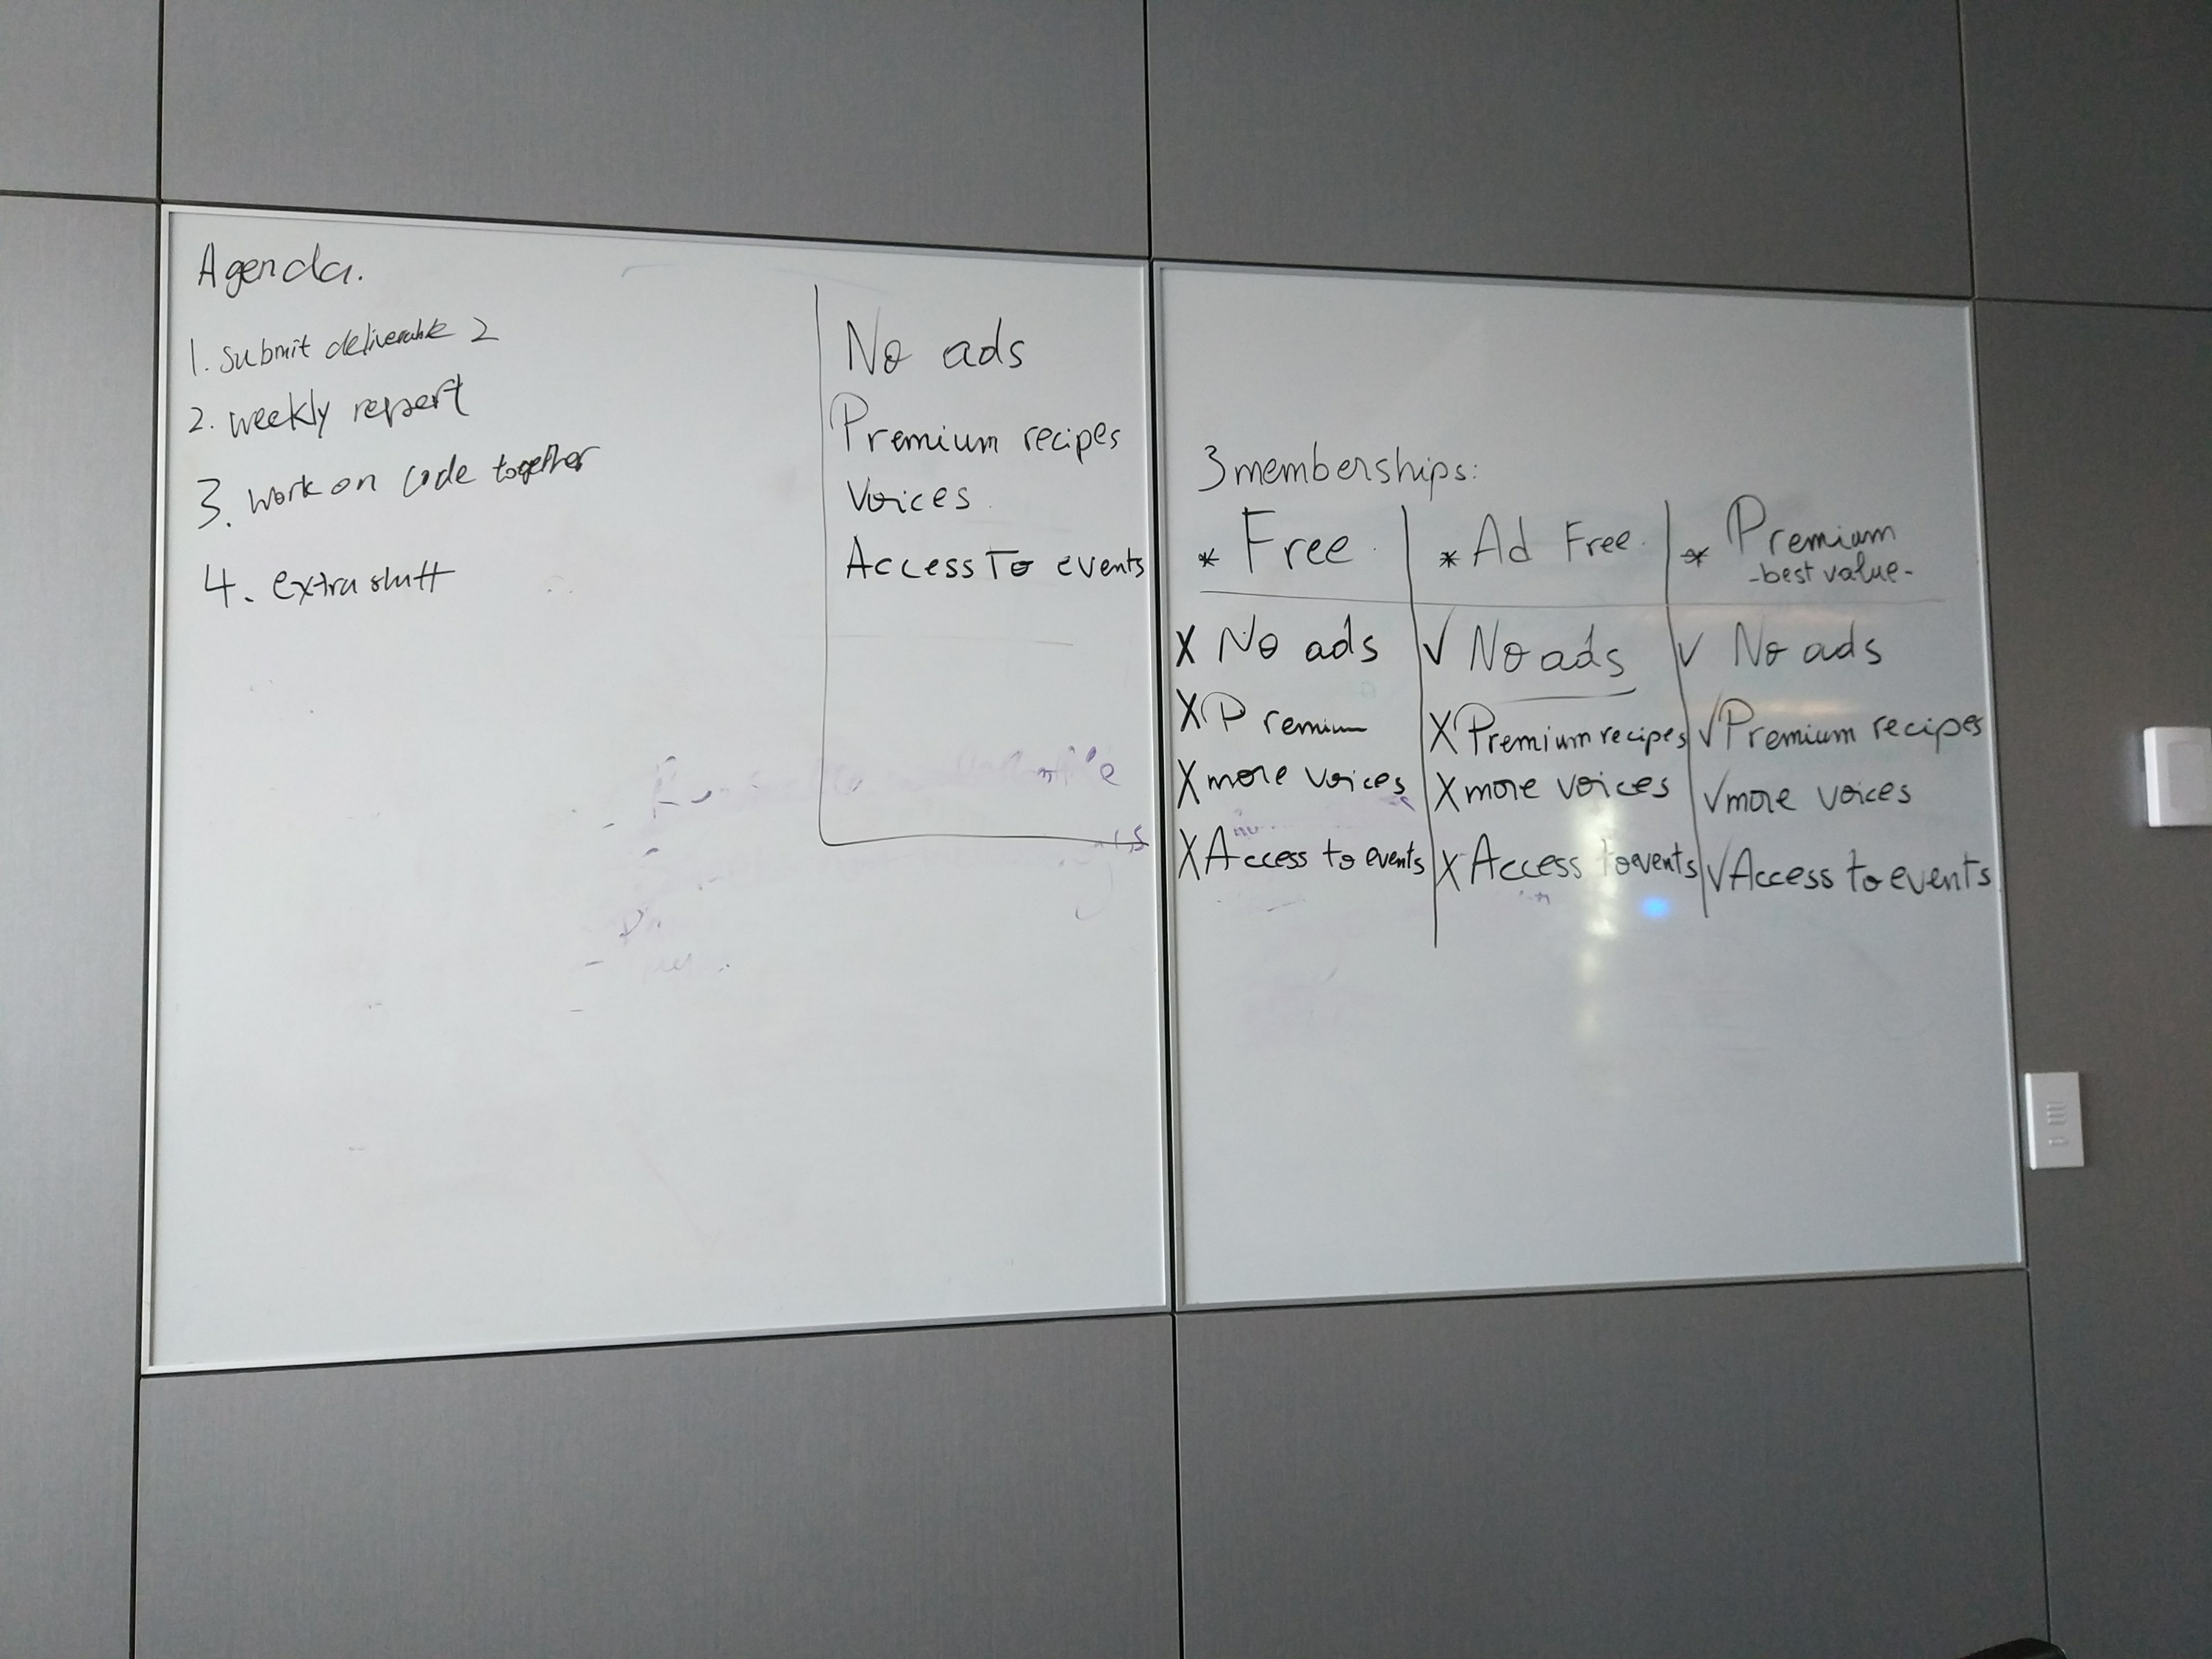 Agenda.
1. submit deliverable 2
2. weekly report
3. work on code together
4. extra stuff
No ads
Premium recipes
Voices
Access To events
3 memberships:
* Free * Ad Free * Premium
-best value-
X No ads ✓ No ads ✓ No ads
X Premium X Premium recipes ✓ Premium recipes
X more voices X more voices ✓ more voices
X Access to events X Access to events ✓ Access to events